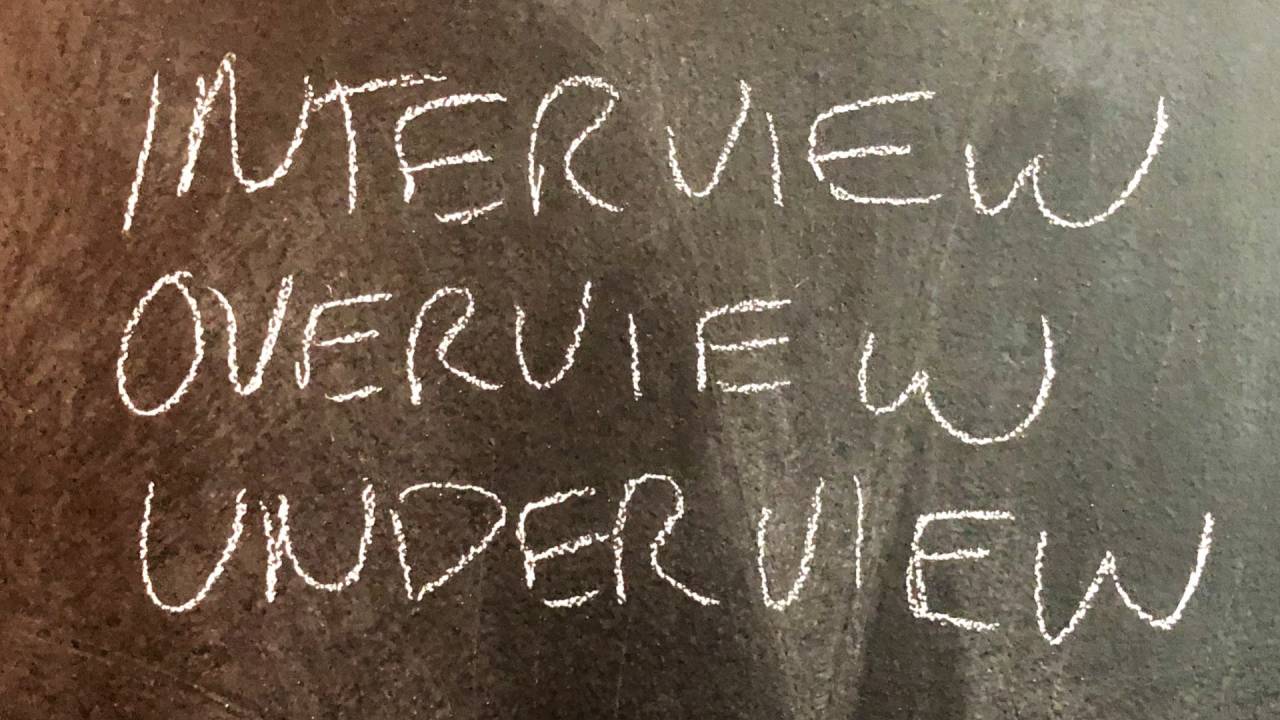 INTERVIEW
OVERVIEW
UNDERVIEW